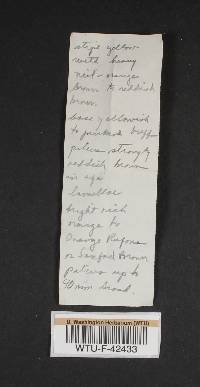 stipe yellow
with heavy
red-orange
brown to reddish
brown.
base yellowish
to pinkish buff
pileus strongly
reddish brown
in age
lamellae
bright rich
orange to
Orange Rufous
or Sanford Brown
pileus up to
90 mm broad.
U. Washington Herbarium (WTU)
WTU-F-42433